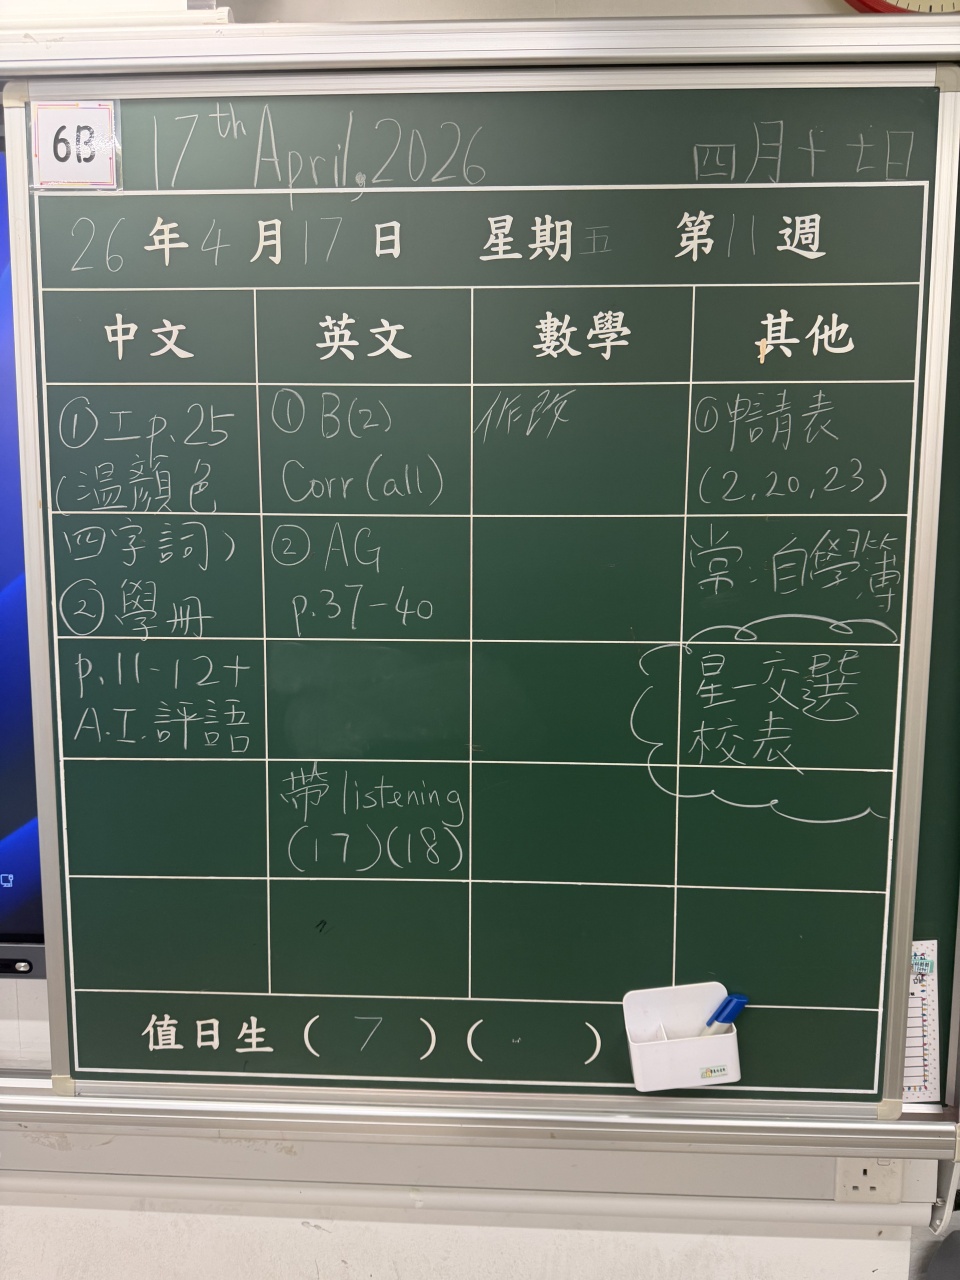 6B
17th April, 2026
四月十七日
26年4月17日 星期五 第11週
中文
英文
數學
其他
①工p.25
(溫顏色
四字詞)
②學冊
p.11-12+
A.I.評語
①B(2)
Corr(all)
②AG
p.37-40
帶listening
(17)(18)
作改
①申請表
(2,20,23)
常:自學簿
星一交選
校表
值日生(7)( )